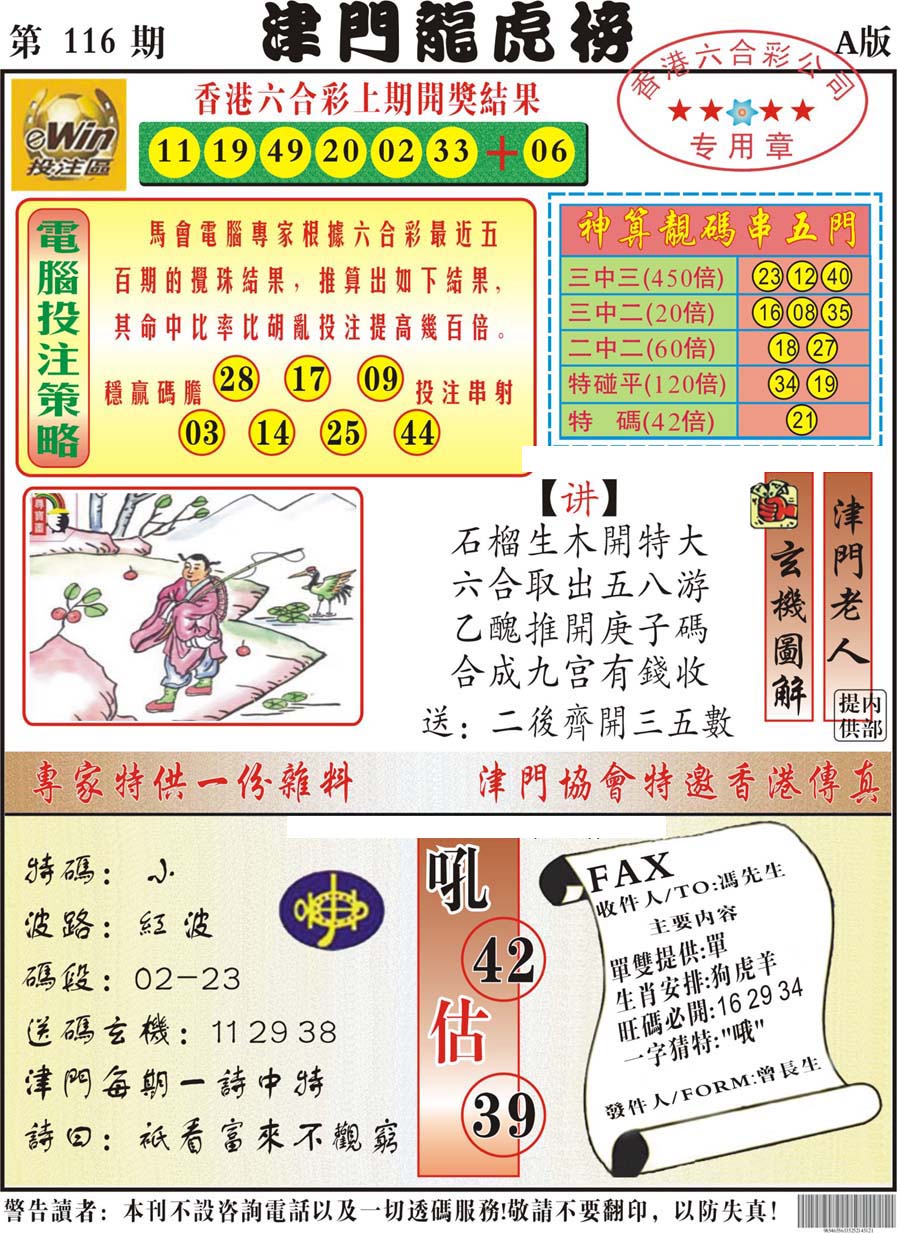 第 116 期
津門龍虎榜
A版
eWin
投注區
香港六合彩上期開獎結果
11 19 49 20 02 33 + 06
香港六合彩公司
★★★★
专用章
電腦投注策略
馬會電腦專家根據六合彩最近五
百期的攪珠結果，推算出如下結果，
其命中比率比胡亂投注提高幾百倍。
穩贏碼膽 28 17 09 投注串射
03 14 25 44
神算靚碼串五門
三中三(450倍) 23 12 40
三中二(20倍) 16 08 35
二中二(60倍) 18 27
特碰平(120倍) 34 19
特 碼(42倍) 21
尋寶圖
【讲】
石榴生木開特大
六合取出五八游
乙醜推開庚子碼
合成九宫有錢收
送：二後齊開三五數
玄機圖解
津門老人
内部提供
專家特供一份雜料
津門協會特邀香港傳真
特碼：小
波路：紅波
碼段：02-23
送碼玄機：11 29 38
津門每期一詩中特
詩曰：祇看富來不觀窮
吼
42
估
39
FAX
收件人/TO:馮先生
主要内容
單雙提供:單
生肖安排:狗虎羊
旺碼必開:16 29 34
一字猜特:"哦"
發件人/FORM:曾長生
警告讀者：本刊不設咨詢電話以及一切透碼服務!敬請不要翻印，以防失真！